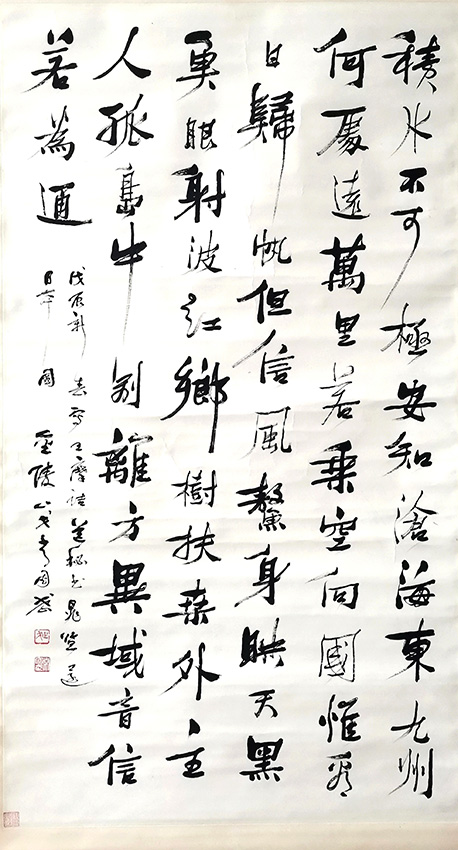 積水不可極安知滄海東九州
何處遠萬里若乘空向國惟看
日歸帆但信風鰲身映天黑
魚眼射波紅鄉樹扶桑外主
人孤島中別離方異域音信
若為通
戊辰新春寫王摩詰送秘書晁監還
日本國 金陵